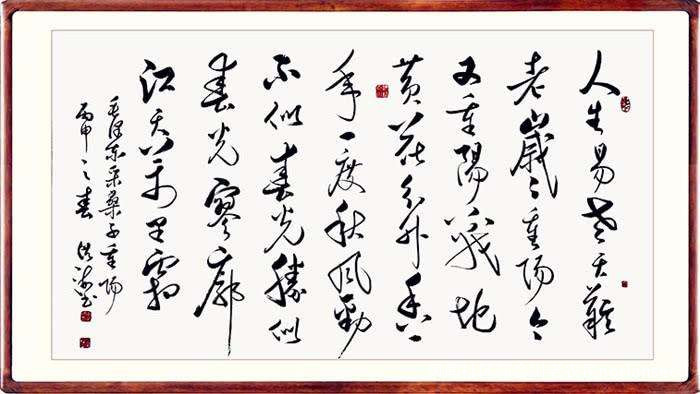 人生易老天難
老歲々重陽今
又重陽戰地
黄花分外香一
年一度秋風勁
不似春光勝似
春光寥廓
江天万里霜
毛澤东采桑子重陽
丙申之春